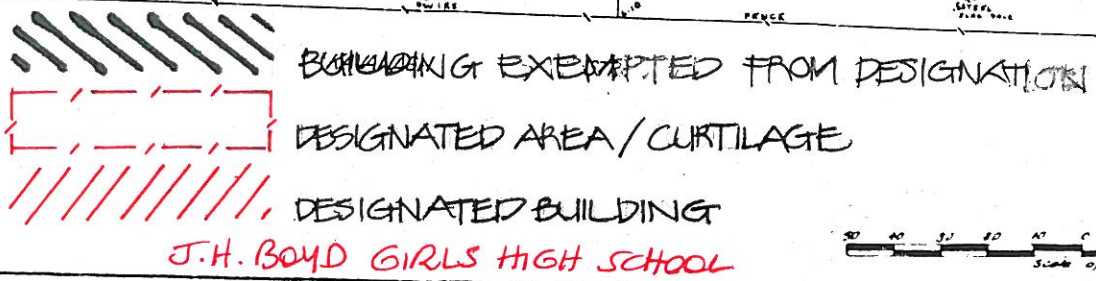 WIRE 6.10 FENCE STEEL FLAG POLE
BUILDING EXEMPTED FROM DESIGNATION
DESIGNATED AREA / CURTILAGE
DESIGNATED BUILDING
J.H. BOYD GIRLS HIGH SCHOOL
50 40 30 20 10 0
Scale